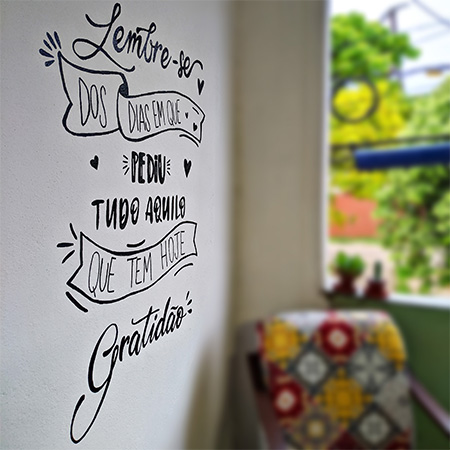 Lembre-se
DOS DIAS EM QUE
PEDIU
TUDO AQUILO
QUE TEM HOJE
Gratidão